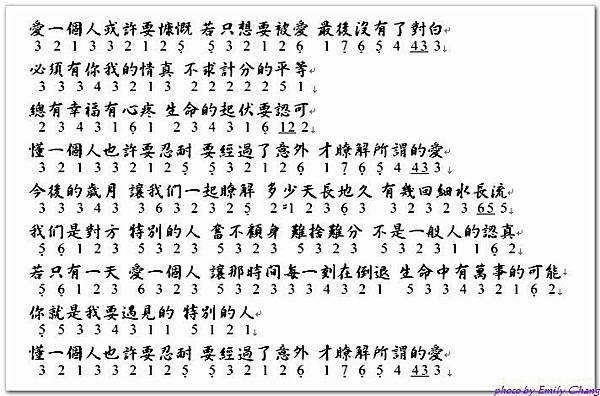 愛一個人或許要慷慨 若只想要被愛 最後沒有了對白
3 2 1 3 3 2 1 2 5 5 3 2 1 2 6 1 7 6 5 4 43 3
必須有你我的情真 不求計分的平等
3 3 3 4 3 2 1 3 2 2 2 2 2 5 1
總有幸福有心疼 生命的起伏要認可
2 3 4 3 1 6 1 2 3 4 3 1 6 12 2
懂一個人也許要忍耐 要經過了意外 才瞭解所謂的愛
3 2 1 3 3 2 1 2 5 5 3 2 1 2 6 1 7 6 5 4 43 3
今後的歲月 讓我们一起瞭解 多少天長地久 有幾回細水長流
3 3 3 4 3 3 6 3 2 3 2 5 2 #1 2 3 6 3 3 2 3 2 3 65 5
我们是對方 特別的人 奮不顧身 難捨難分 不是一般人的認真
5 6 1 2 3 5 3 2 3 5 3 2 3 5 3 2 3 5 3 2 3 1 1 6 2
若只有一天 愛一個人 讓那時間每一刻在倒退 生命中有萬事的可能
5 6 1 2 3 5 3 2 3 5 3 3 3 3 3 4 3 2 1 5 3 3 4 3 2 1 6 2
你就是我要遇見的 特別的人
5 5 3 3 4 3 1 1 5 1 2 1
懂一個人也許要忍耐 要經過了意外 才瞭解所謂的愛
3 2 1 3 3 2 1 2 5 5 3 2 1 2 6 1 7 6 5 4 43 3
photo by Emily Chang